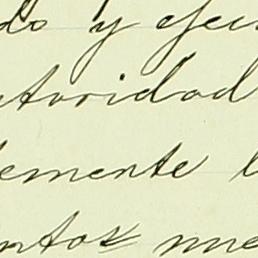 do y ejec
utoridad
lemente l
ntos nue